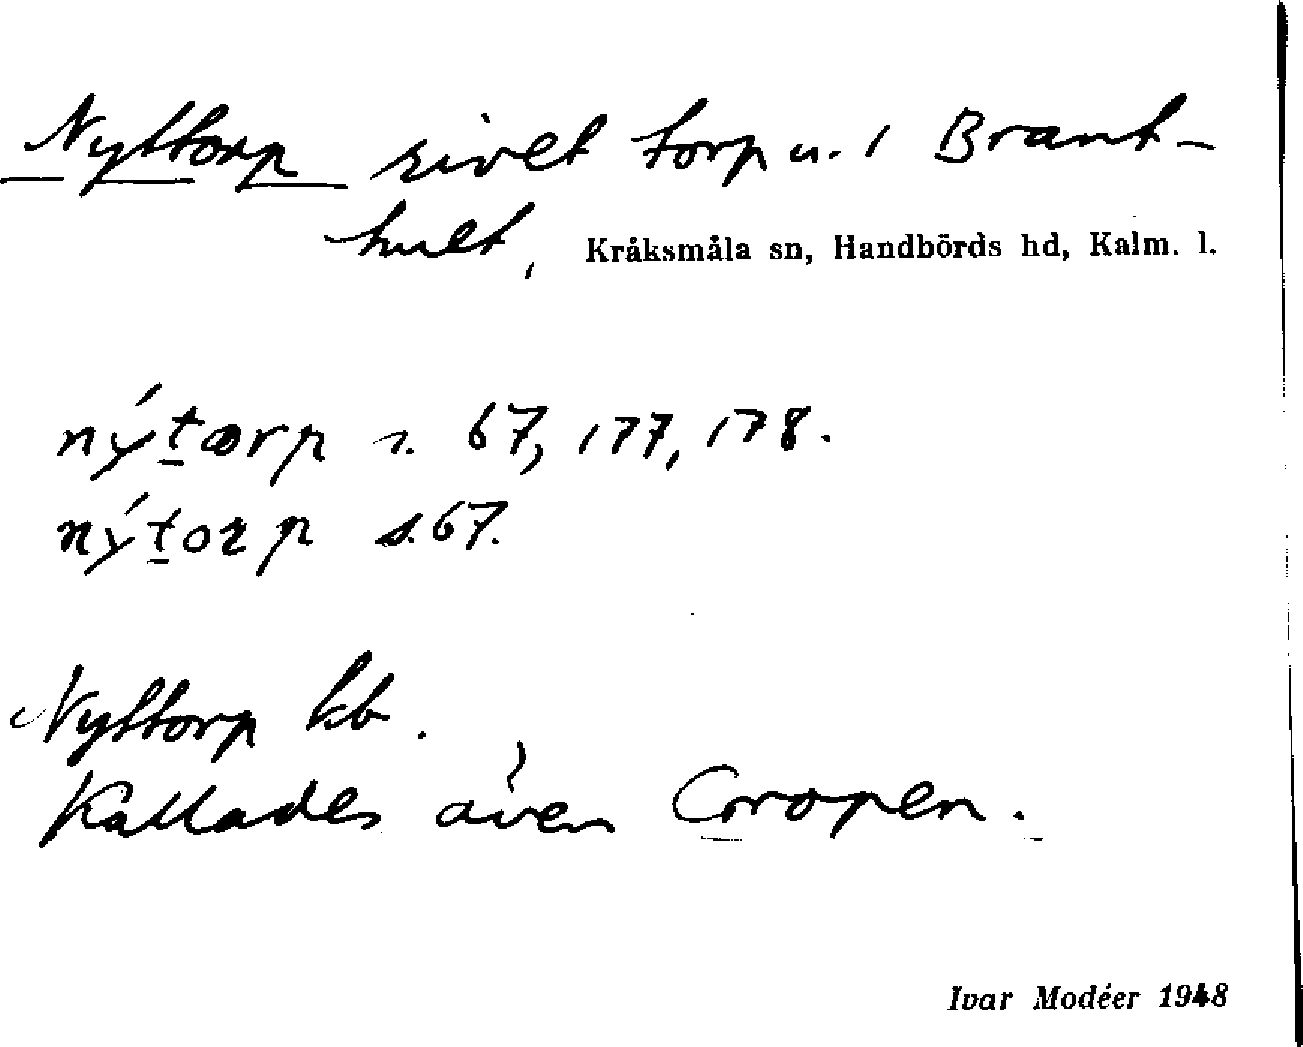 Nyttorp rivet torp u. 1 Brant-
hult, Kråksmåla sn, Handbörds hd, Kalm. l.
nýtørp s. 67, 177, 178.
nýtorp s. 67.
Nyttorp kb.
Kallades även Coropen.
Ivar Modéer 1948